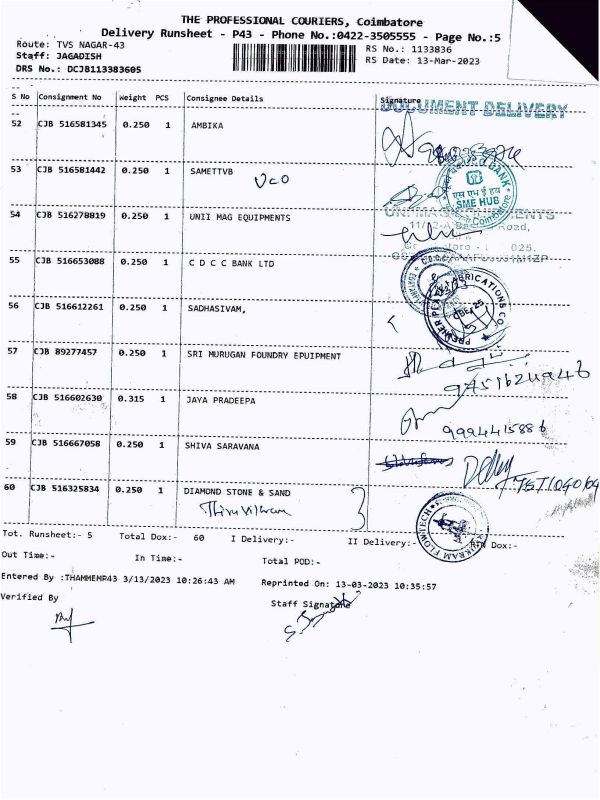 THE PROFESSIONAL COURIERS, Coimbatore
Delivery Runsheet - P43 - Phone No.:0422-3505555 - Page No.:5
Route: TVS NAGAR-43 RS No.: 1133836
Staff: JAGADISH RS Date: 13-Mar-2023
DRS No.: DCJB113383605
S No Consignment No Weight PCS Consignee Details Signature
DOCUMENT DELIVERY
52 CJB 516581345 0.250 1 AMBIKA
53 CJB 516581442 0.250 1 SAMETTVB
UCO
BANK
एस एम ई हब
SME HUB
Coimbatore
54 CJB 516278819 0.250 1 UNII MAG EQUIPMENTS
55 CJB 516653088 0.250 1 C D C C BANK LTD
56 CJB 516612261 0.250 1 SADHASIVAM,
PREMIER FABRICATIONS CO.
57 CJB 89277457 0.250 1 SRI MURUGAN FOUNDRY EPUIPMENT
58 CJB 516602630 0.315 1 JAYA PRADEEPA
9994415886
59 CJB 516667058 0.250 1 SHIVA SARAVANA
60 CJB 516325834 0.250 1 DIAMOND STONE & SAND
Thiru Vikram
VIKRAM FLOWTECH
Tot. Runsheet:- 5 Total Dox:- 60 I Delivery:- II Delivery:- RTN Dox:-
Out Time:- In Time:- Total POD:-
Entered By :THAMMEMP43 3/13/2023 10:26:43 AM Reprinted On: 13-03-2023 10:35:57
Verified By Staff Signature